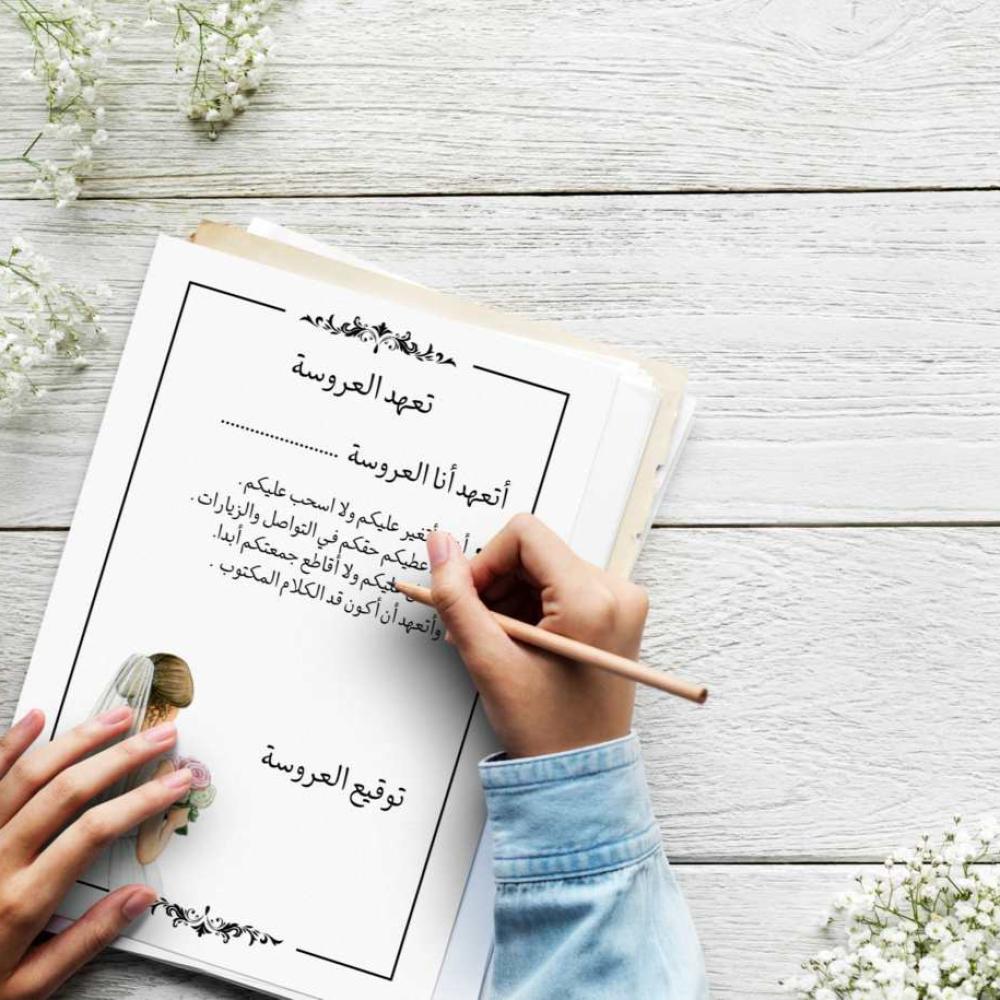 تعهد العروسة
أتعهد أنا العروسة ......................
أتغير عليكم ولا اسحب عليكم.
عطيكم حقكم في التواصل والزيارات .
عليكم ولا أقاطع جمعتكم أبدا.
وأتعهد أن أكون قد الكلام المكتوب .
توقيع العروسة